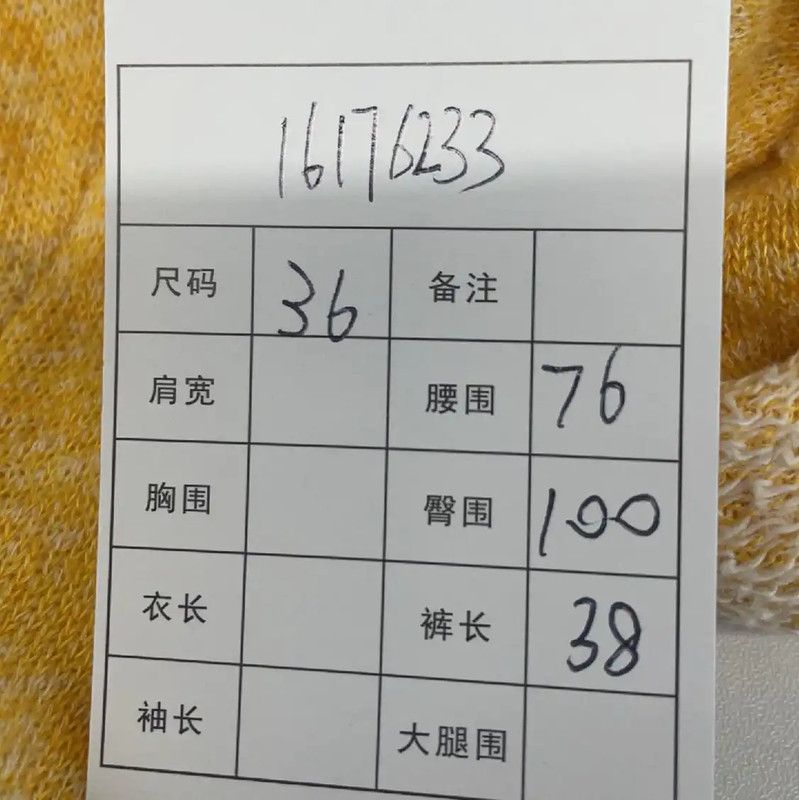 16176233
尺码 36 备注
肩宽 腰围 76
胸围 臀围 100
衣长 裤长 38
袖长 大腿围